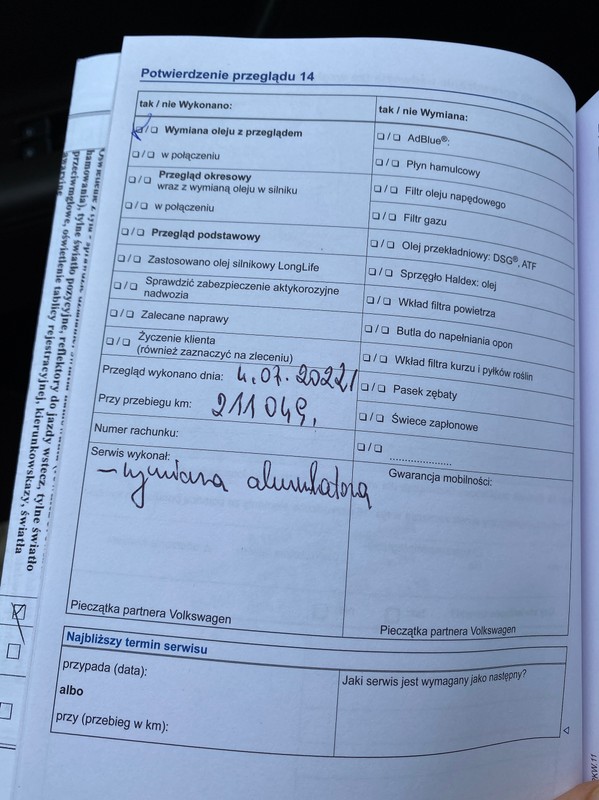 Potwierdzenie przeglądu 14
tak / nie Wykonano:
☐/☐ Wymiana oleju z przeglądem
☐/☐ w połączeniu
☐/☐ Przegląd okresowy
wraz z wymianą oleju w silniku
☐/☐ w połączeniu
☐/☐ Przegląd podstawowy
☐/☐ Zastosowano olej silnikowy LongLife
☐/☐ Sprawdzić zabezpieczenie aktykorozyjne
nadwozia
☐/☐ Zalecane naprawy
☐/☐ Życzenie klienta
(również zaznaczyć na zleceniu)
Przegląd wykonano dnia: 4.07.2022
Przy przebiegu km: 211 049,
Numer rachunku:
Serwis wykonał:
- wymiana akumulatora
Pieczątka partnera Volkswagen
tak / nie Wymiana:
☐/☐ AdBlue®:
☐/☐ Płyn hamulcowy
☐/☐ Filtr oleju napędowego
☐/☐ Filtr gazu
☐/☐ Olej przekładniowy: DSG®, ATF
☐/☐ Sprzęgło Haldex: olej
☐/☐ Wkład filtra powietrza
☐/☐ Butla do napełniania opon
☐/☐ Wkład filtra kurzu i pyłków roślin
☐/☐ Pasek zębaty
☐/☐ Świece zapłonowe
☐/☐ ....................
Gwarancja mobilności:
Pieczątka partnera Volkswagen
Najbliższy termin serwisu
przypada (data):
albo
przy (przebieg w km):
Jaki serwis jest wymagany jako następny?
hamowania), tylne światło pozycyjne, reflektory do jazdy wstecz, tylne światło
przeciwmgłowe, oświetlenie tablicy rejestracyjnej, kierunkowskazy, światła
awaryjne